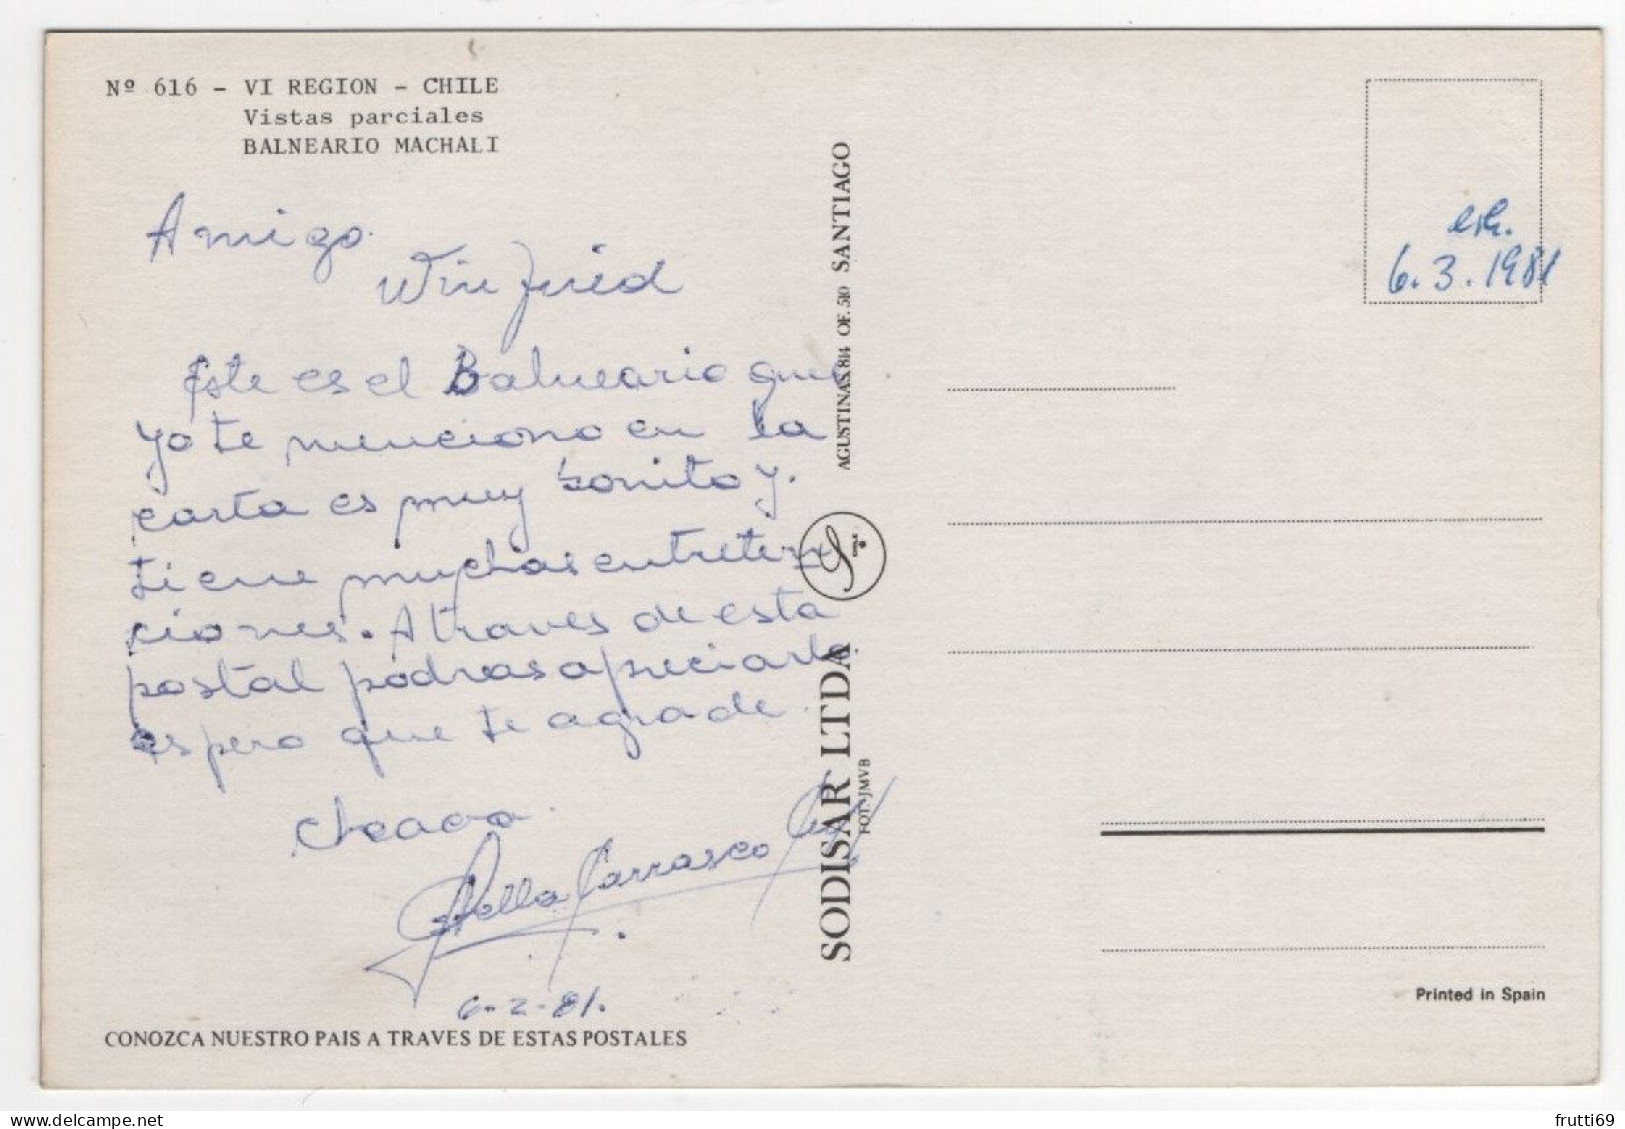 Nº 616 - VI REGION - CHILE
Vistas parciales
BALNEARIO MACHALI
Amigo.
Winfried
Este es el Balneario que
yo te menciono en la
carta es muy bonito y.
tiene muchas entreten
ciones. A traves de esta
postal podras apreciarlo
espero que te agrade.
Chaooo
Stella Carrasco
6-2-81.
CONOZCA NUESTRO PAIS A TRAVES DE ESTAS POSTALES
SODISAR LTDA
AGUSTINAS 814 OF. 510 SANTIAGO
FOT.-JMVB
CHILE
erh.
6.3.1981
Printed in Spain
frutti69